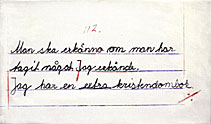 112.
Man ska erkänna om man har
tagit något. Jag erkände.
Jag har en extra kristendomsbok.